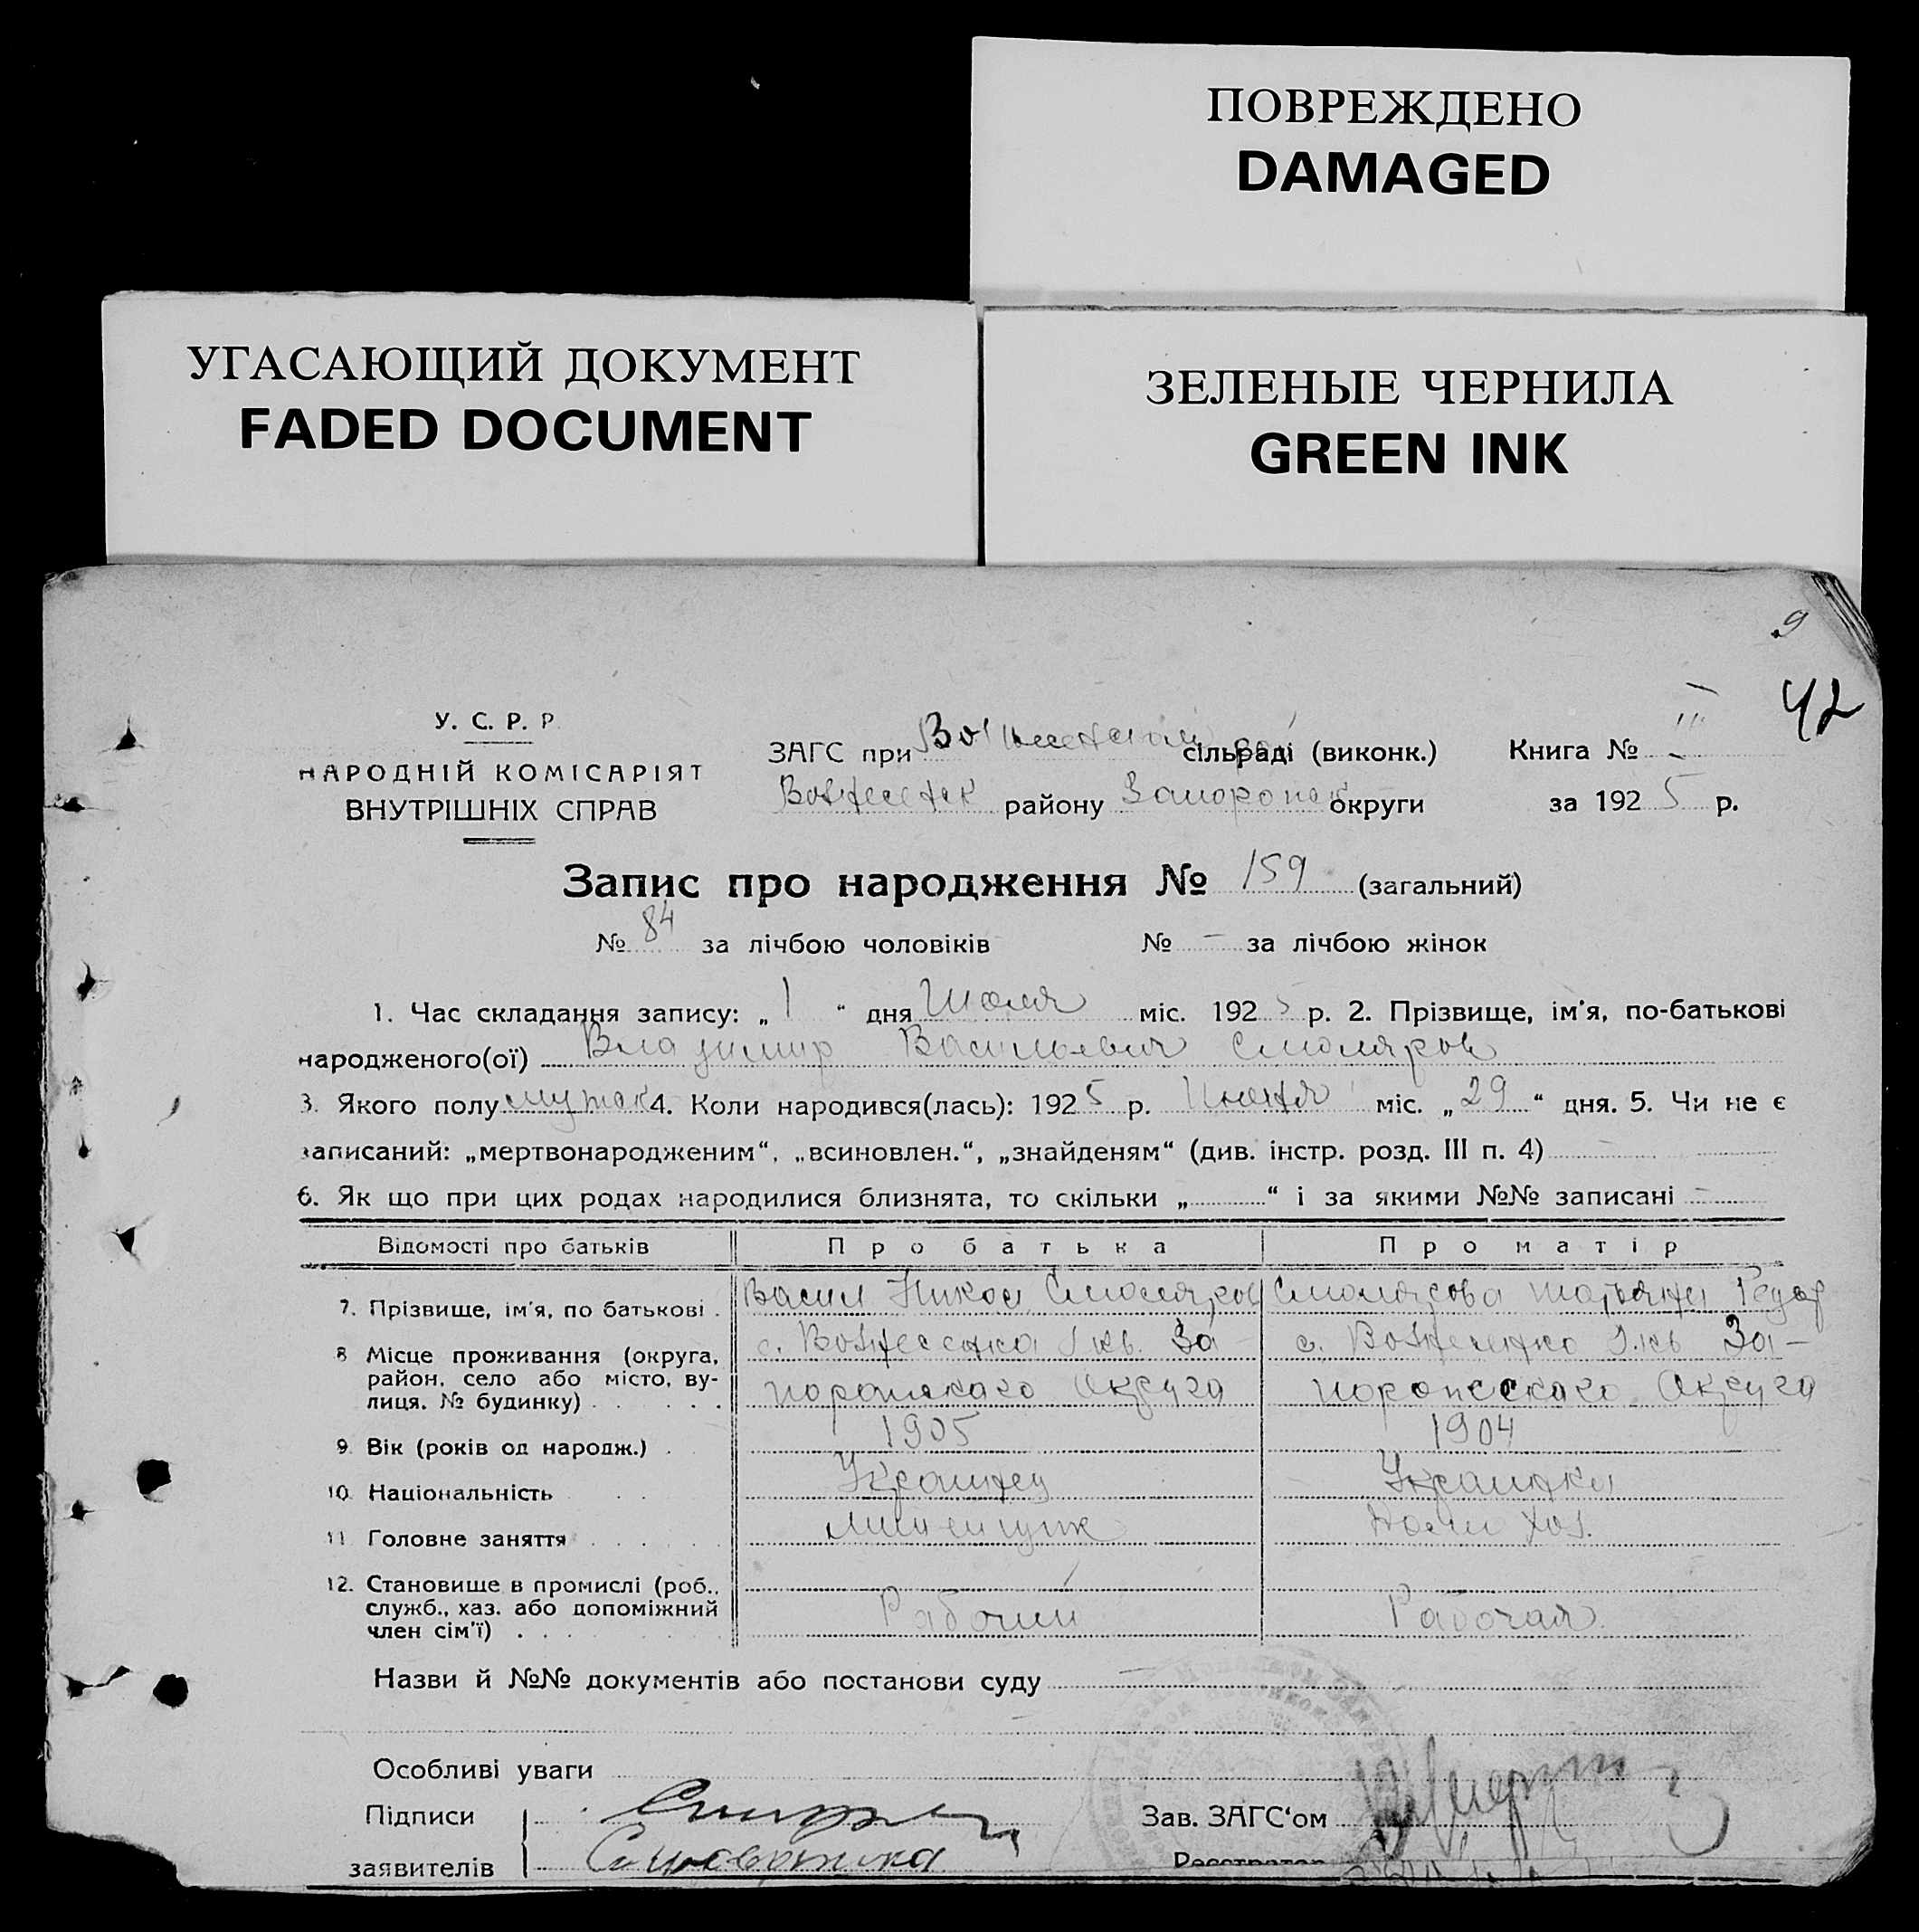 ПОВРЕЖДЕНО
DAMAGED
УГАСАЮЩИЙ ДОКУМЕНТ
FADED DOCUMENT
ЗЕЛЕНЫЕ ЧЕРНИЛА
GREEN INK
9
42
У. С. Р. Р
НАРОДНІЙ КОМІСАРІЯТ
ВНУТРІШНІХ СПРАВ
ЗАГС при сільраді (виконк.) Книга № III
району округи за 1925 р.
Запис про народження № 159 (загальний)
№ 84 за лічбою чоловіків № — за лічбою жінок
1. Час складання запису: „ 1 “ дня Июля міс. 1925 р. 2. Прізвище, ім'я, по-батькові
народженого(ої) Владимир Васильевич Смоляров
3. Якого полу мужск 4. Коли народився(лась): 1925 р. Июня міс. „29“ дня. 5. Чи не є
записаний: „мертвонародженим“, „всиновлен.“, „знайденям“ (див. інстр. розд. III п. 4) —
6. Як що при цих родах народилися близнята, то скільки „ “ і за якими №№ записані —
Відомості про батьків Про батька Про матір
7. Прізвище, ім'я, по батькові . Васил Никол Смоляров Смолярова Татьяна
8 Місце проживання (округа, с. Вознесенка За- с. Вознесенка За-
район, село або місто, ву-
лиця. № будинку) . . . . . порожскаго Округа порожскаго Округа
9. Вік (років од народж.) . 1905 1904
10. Національність Украинец Украинка
11 Головне заняття Домаш хоз.
12. Становище в промислі (роб.,
служб., хаз. або допоміжний Рабочий Рабочая
член сім'ї) . . . .
Назви й №№ документів або постанови суду —
Особливі уваги
Підписи Зав. ЗАГС‘ом
заявителів Реєстратор